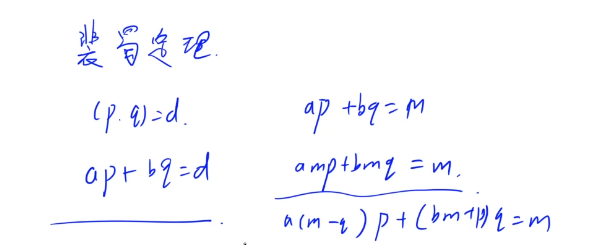 裴蜀定理.
(p.q)=d.
ap+bq=d
ap+bq=m
amp+bmq=m.
a(m-q)p+(bm+p)q=m